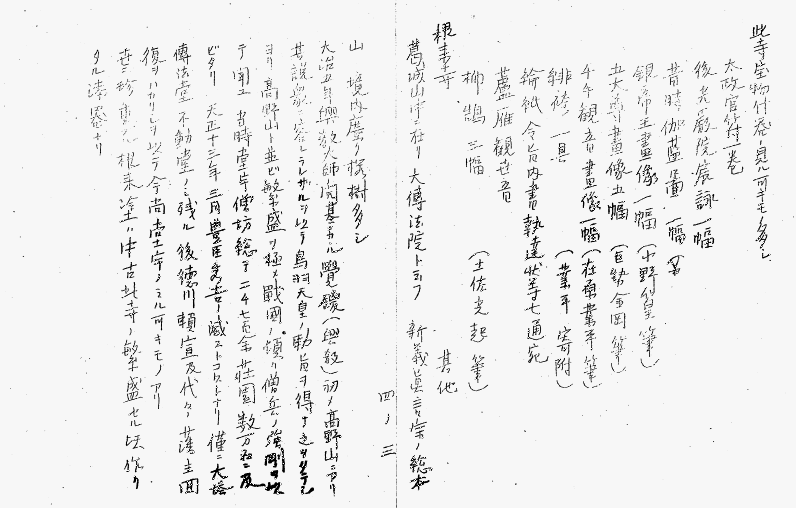 此寺宝物什器ノ見ル可キモノ多シ
太政官符一巻
後光厳院宸詠一幅
昔時伽藍畵一幅 箱
銀 帝王畫像一幅(小野篁筆)
五大尊畫像五幅(巨勢金岡筆)
千手観音畫像一幅(在原業平筆)
緋袴一具(業平寄附)
綸紙令旨内書執達状等七通宛
蘆雁観世音
柳鵲三幅(土佐光起筆) 其他
根来寺
葛城山中ニ在リ大傳法院ト云フ 新義眞言宗ノ総本
四ノ三
山 境内慶ク桜樹多シ
大治五年興教大師開基ナル覺鑁(興教)初メ高野山ニアリ
其説衆ニ容レラレザルヲ以テ鳥羽天皇ノ勅旨ヲ得テ
ヨリ高野山ト並ビ繁盛ヲ極メ戰國ノ頃ハ僧兵ノ強剛ヲ以
テ聞ユ 当時堂宇僧坊総テ二千七百余荘園数万石ニ及
ビタリ 天正十三年三月豊臣秀吉ノ滅ストコロトナリ僅ニ大塔
傳法堂不動堂ノミ残ル 後徳川頼宣及代々ノ藩主回
復ヲハカリシヲ以テ今尚堂宇ノミル可キモノアリ
世ニ珍重スル根来塗ハ中古此寺ノ繁盛セル時作リ
タル漆器ナリ